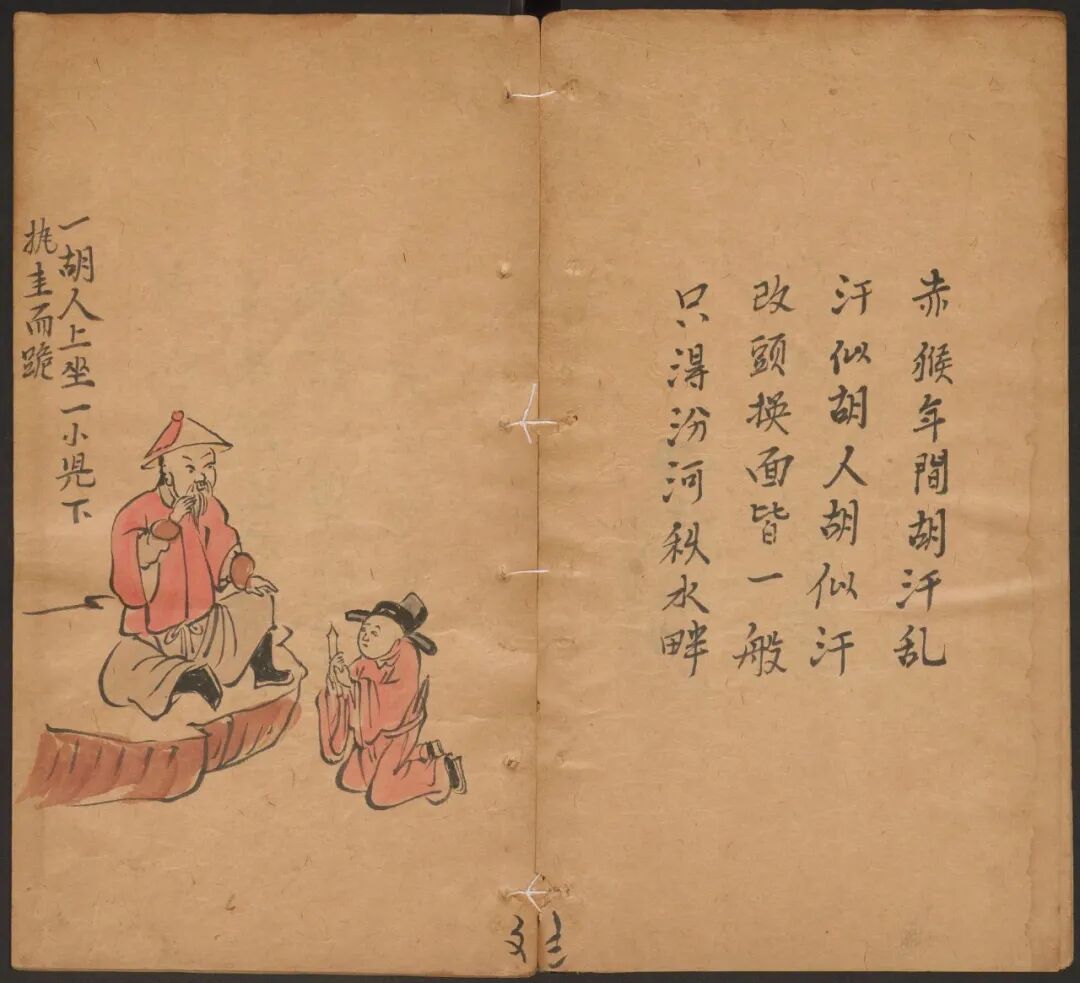 赤猴年間胡汗乱
汗似胡人胡似汗
改頭換面皆一般
只淂汾河秋水畔
一胡人上坐一小児下
执圭而跪